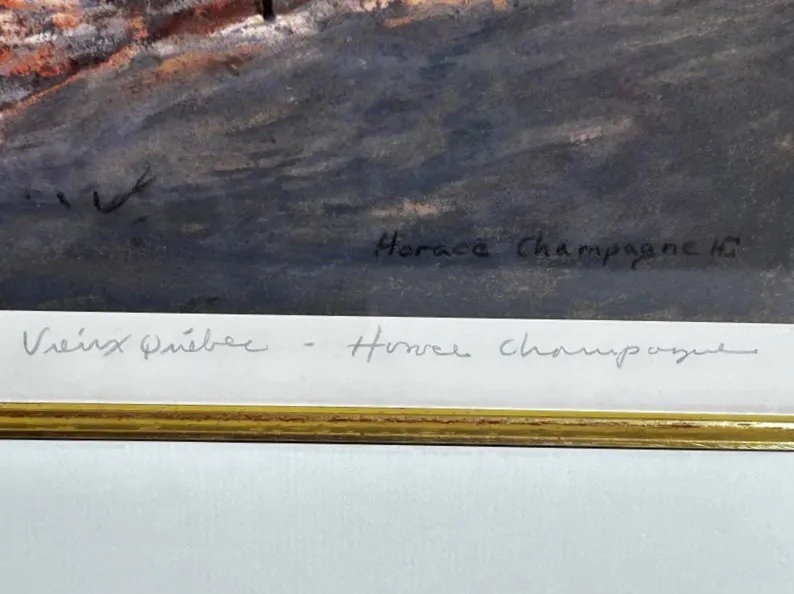 Horace Champagne
Vieux Québec - Horace Champagne